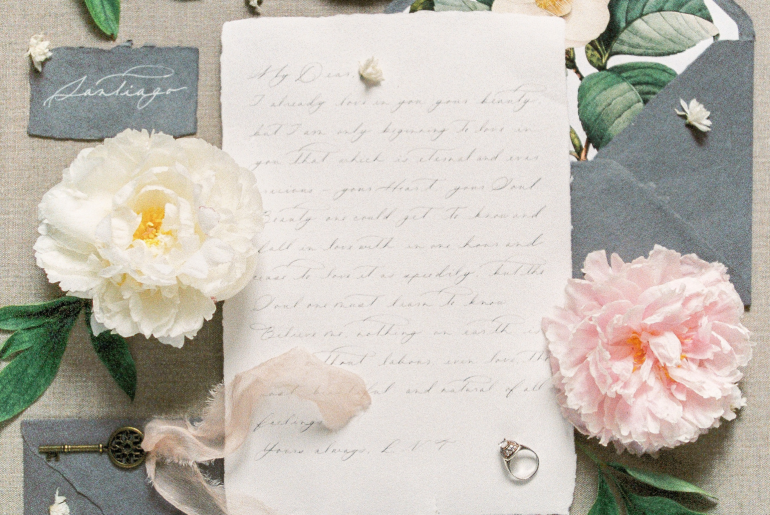 Santiago
My Dear,
I already love in you your beauty,
but I am only beginning to love in
you that which is eternal and ever
precious - your Heart, your Soul.
Beauty one could get to know and
fall in love with in one hour and
cease to love it as speedily; but the
Soul one must learn to know.
Believe me, nothing on earth is
without labour, even love, the
most and natural of all
feelings.
Yours always, L. N. T.